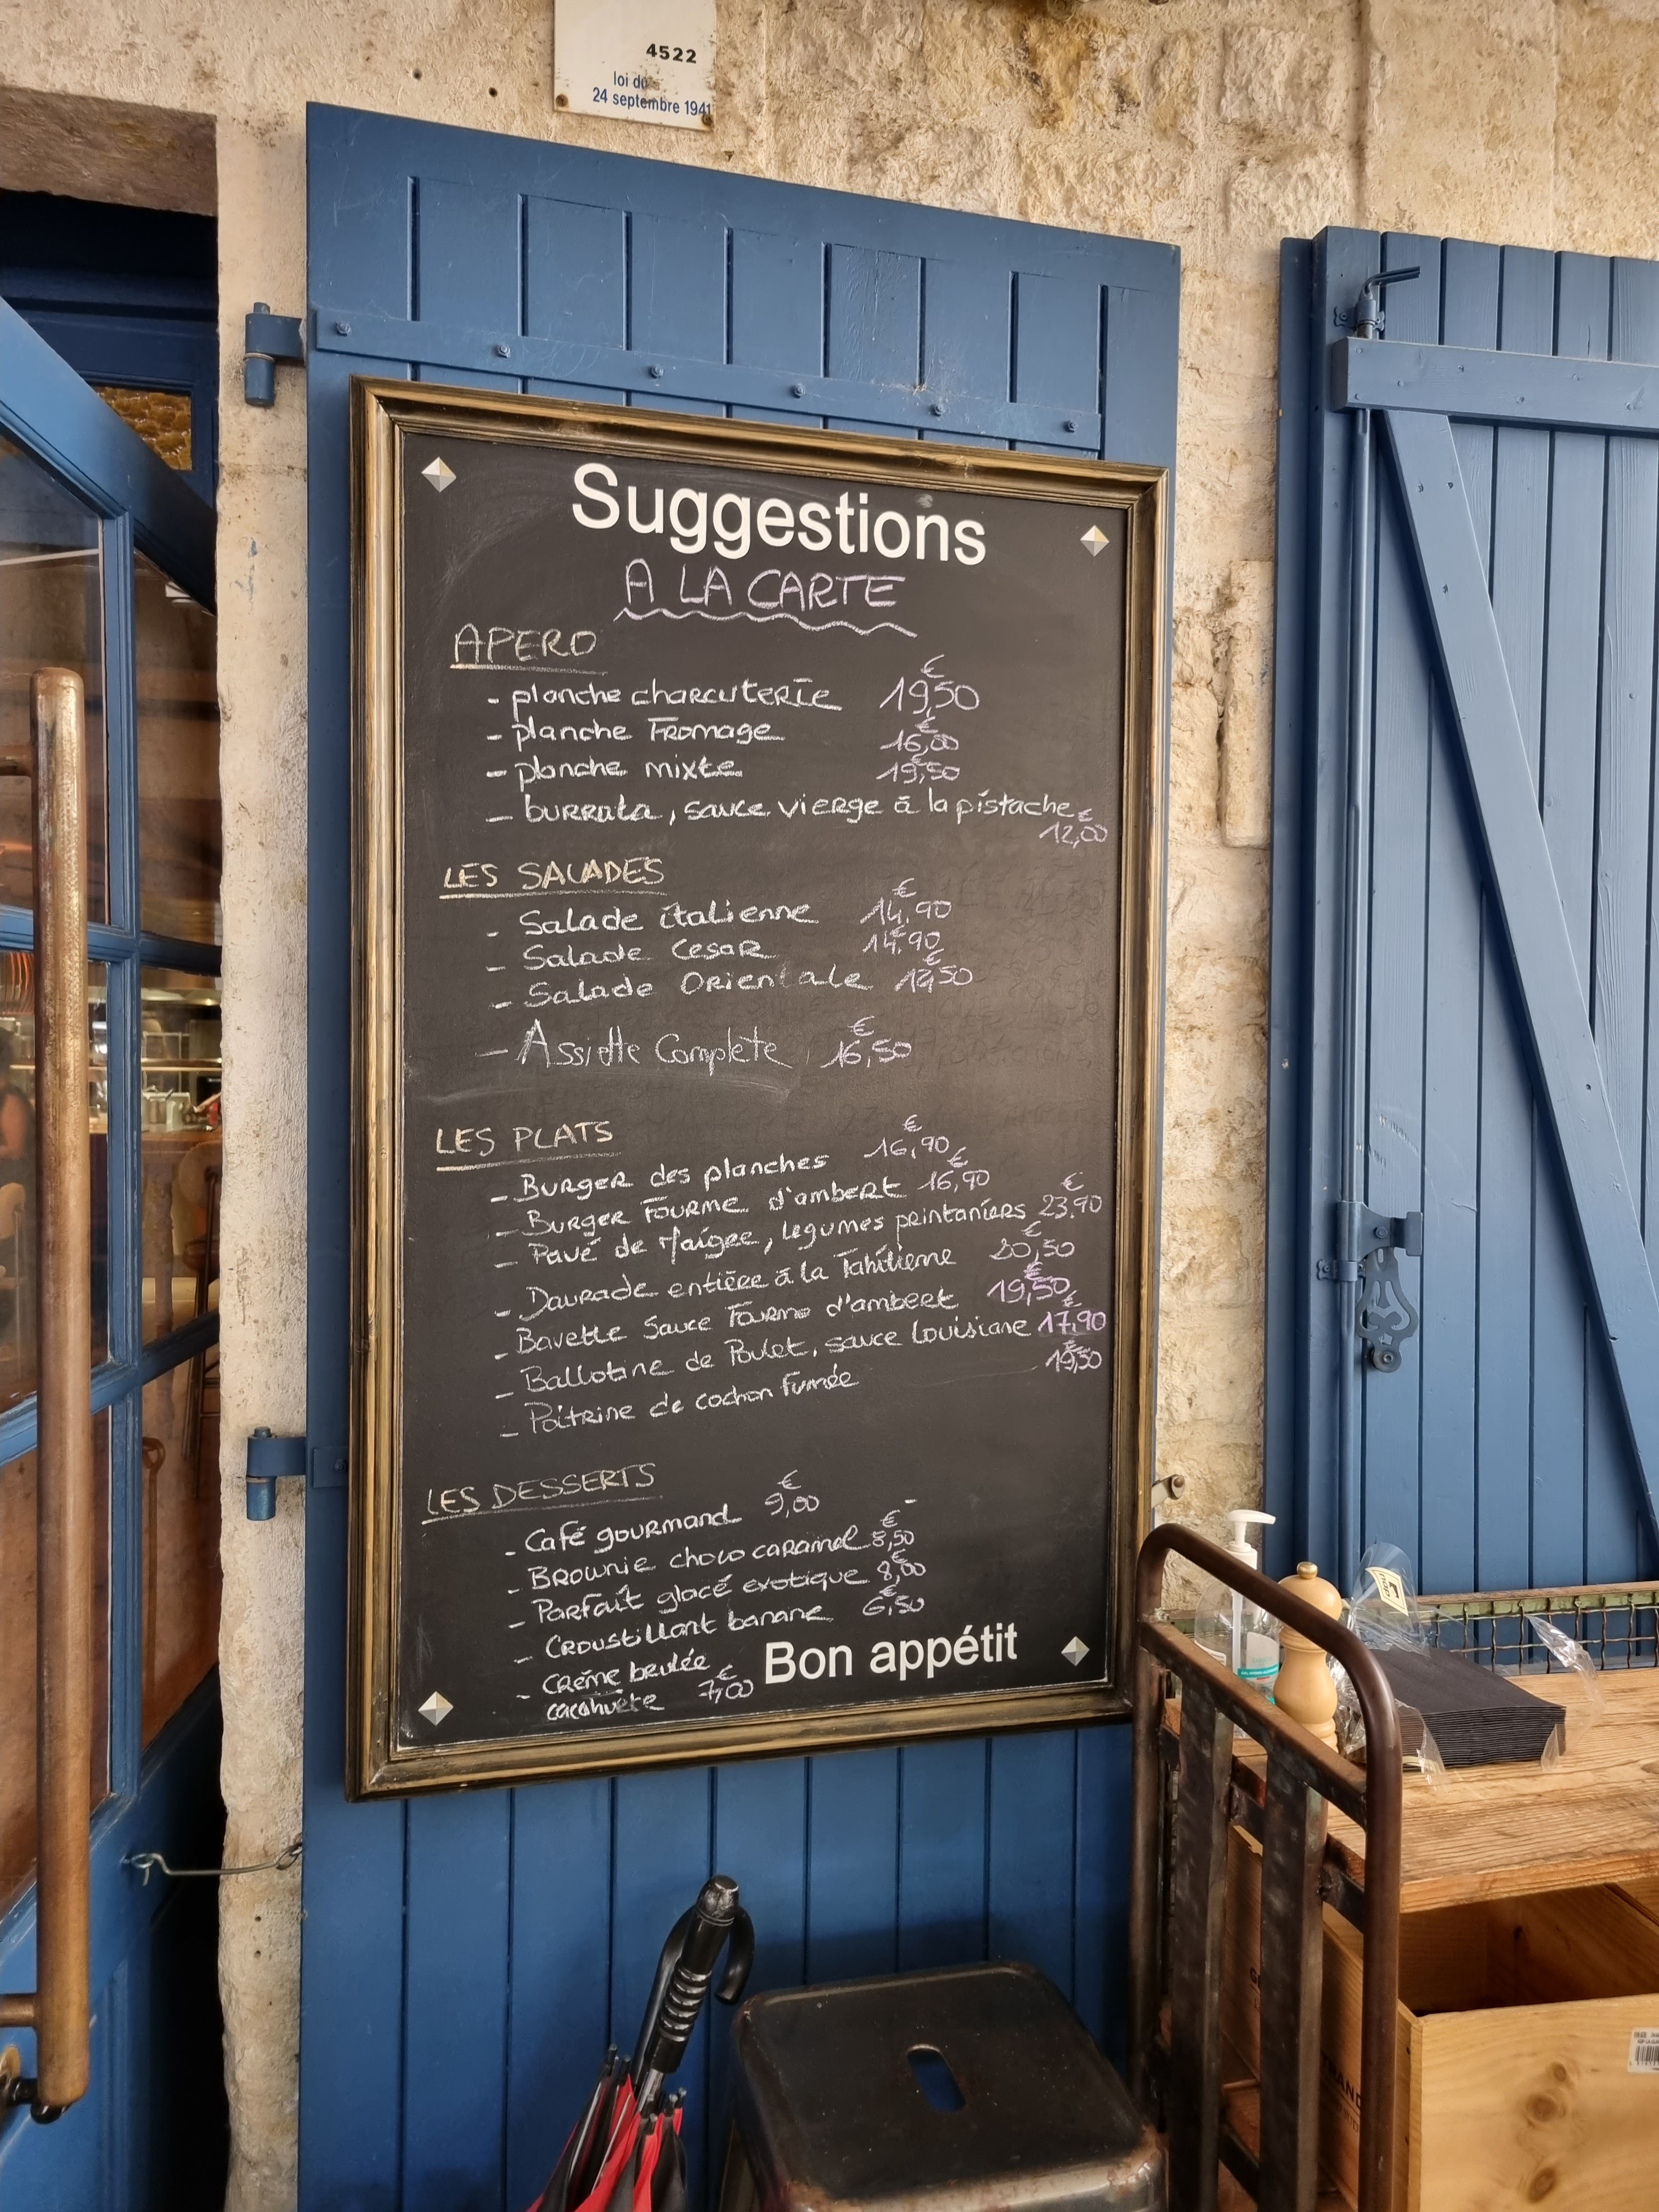 4522
loi du
24 septembre 1941
Suggestions
A LA CARTE
APERO
- planche charcuterie 19,50 €
- planche Fromage 16,00 €
- planche mixte 19,50 €
- burrata, sauce vierge à la pistache
12,00 €
LES SALADES
- Salade italienne 14,90 €
- Salade Cesar 14,90 €
- Salade Orientale €
- Assiette Complète 16,50 €
LES PLATS
- Burger des planches 16,90 €
- Burger Fourme d'ambert 16,90 €
- Pavé de Maigre, légumes printaniers 23,90 €
- Daurade entière à la Tahitienne 20,50 €
- Bavette Sauce Fourme d'ambert 19,50 €
- Ballotine de Poulet, sauce Louisiane 17,90 €
- Poitrine de cochon fumée 19,50 €
LES DESSERTS
- Café gourmand 9,00 €
- Brownie choco caramel 8,50 €
- Parfait glacé exotique 8,00 €
- Croustillant banane 6,50 €
- crème brulée
cacahuète 7,00 €
Bon appétit